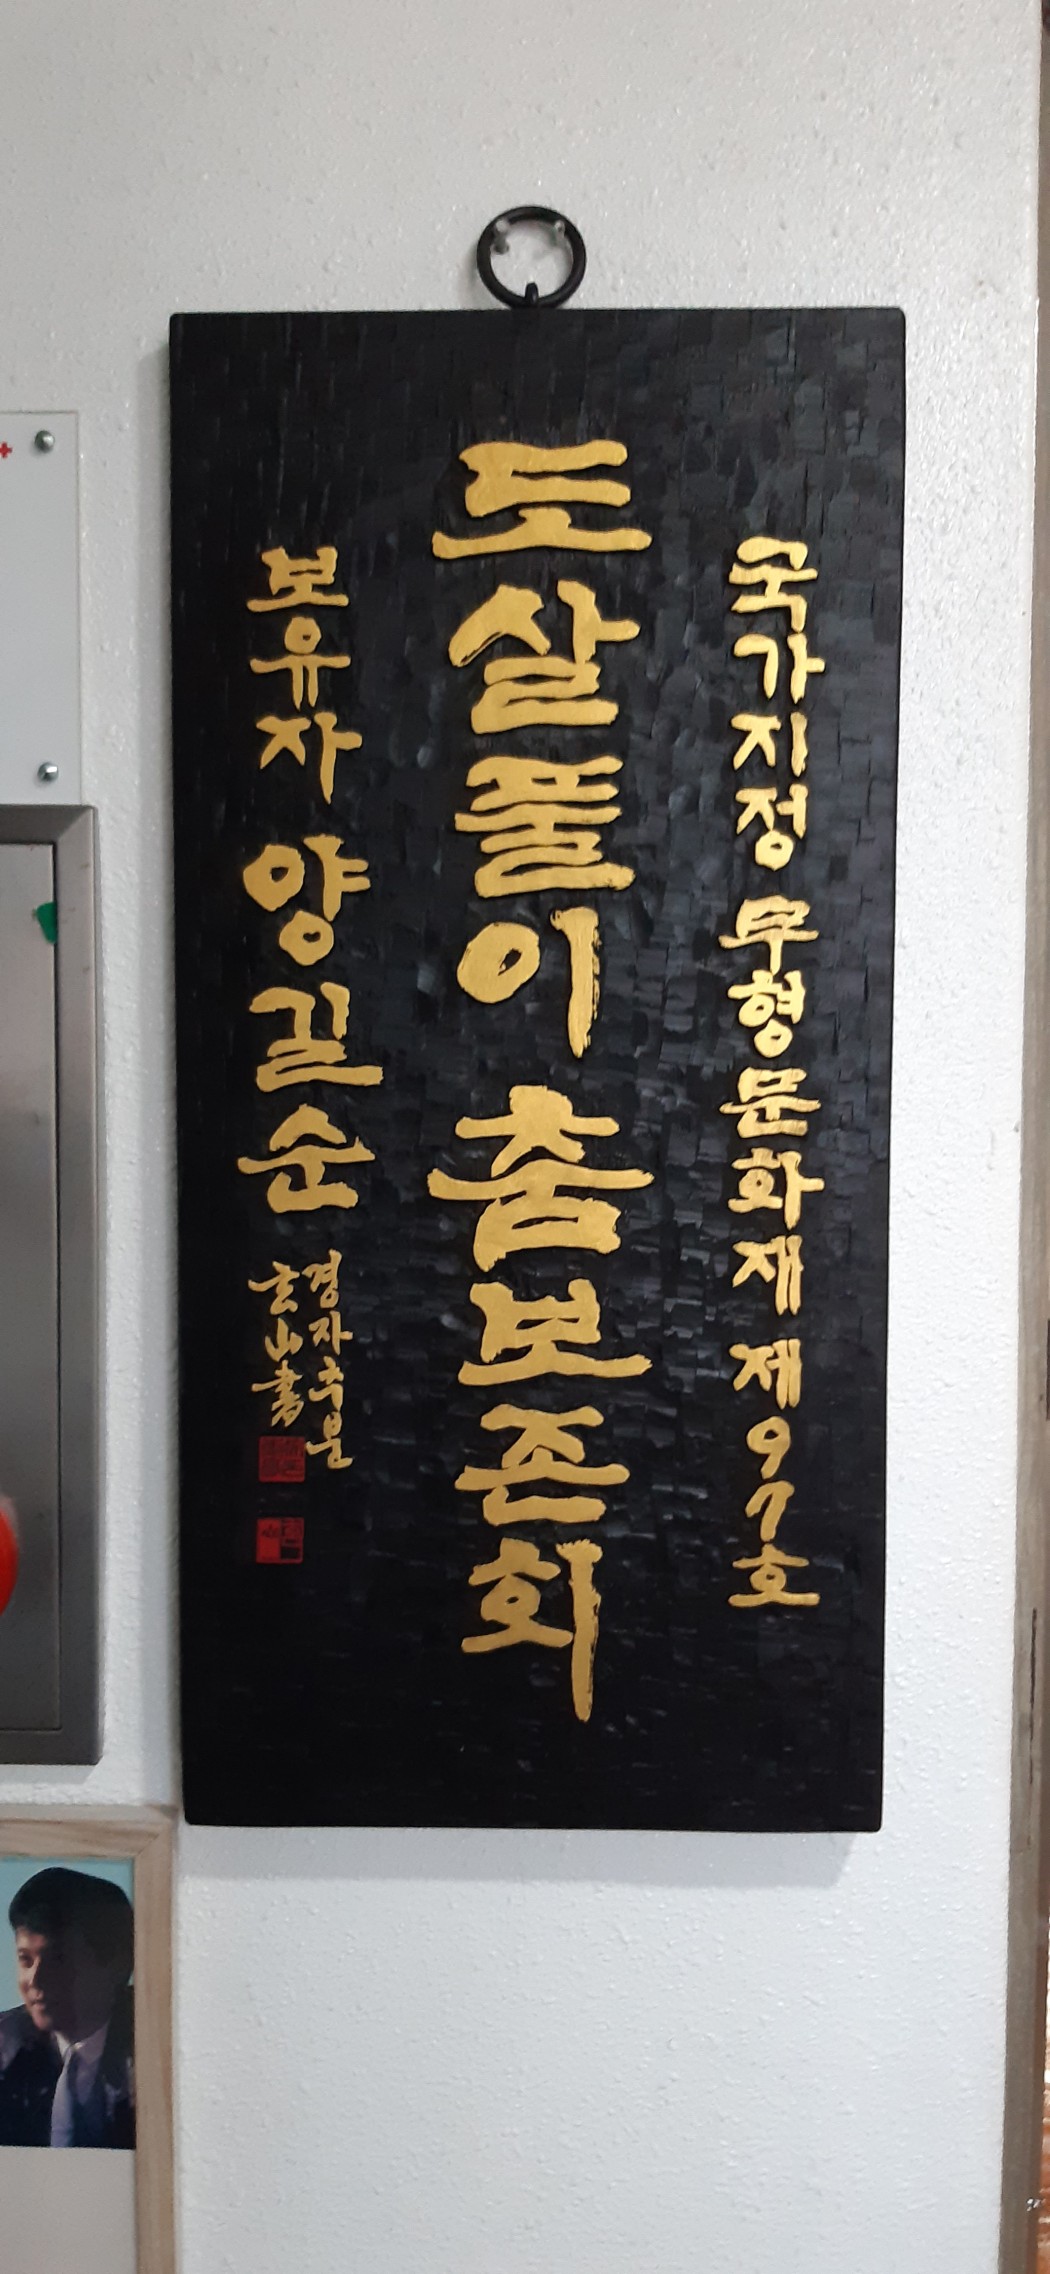 국가지정 무형문화재 제97호
도살풀이 춤보존회
보유자 양길순
경자추분
玄山書